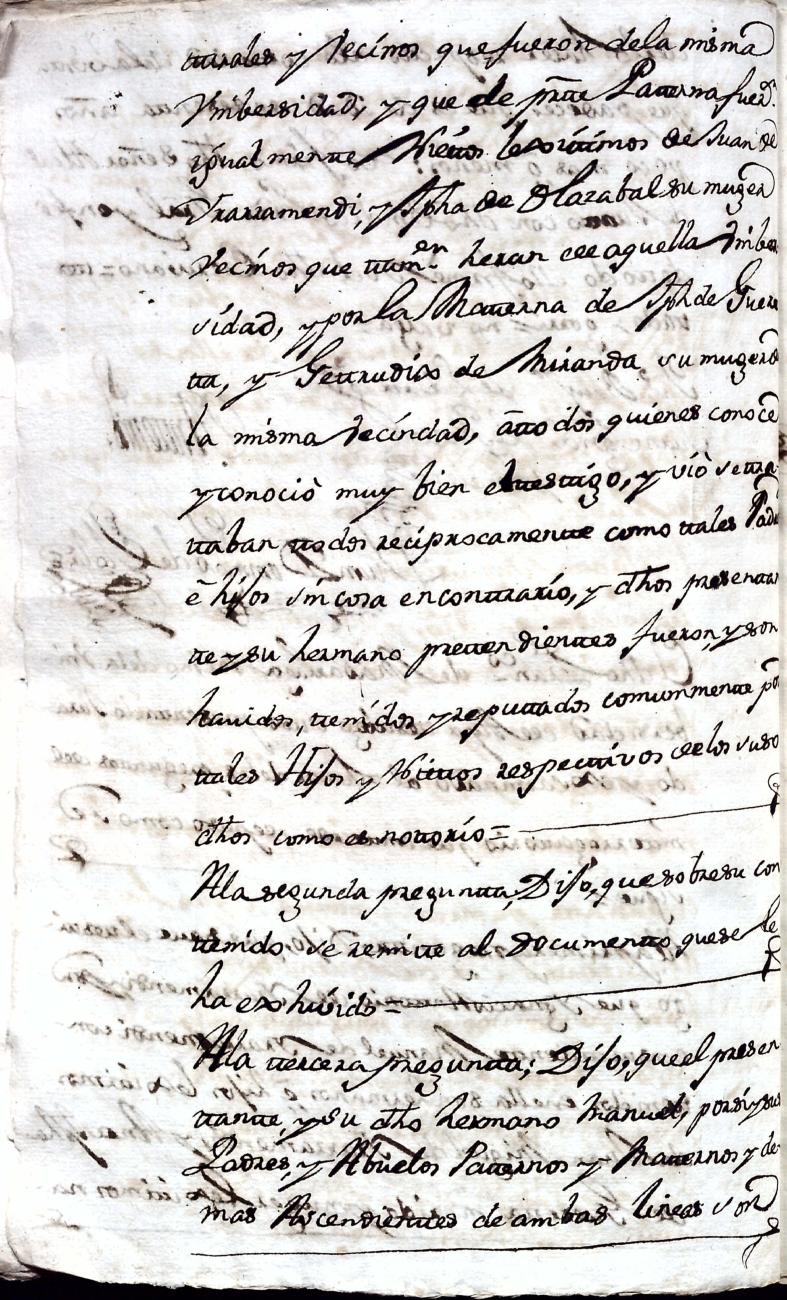 turales y Vecinos que fueron dela misma
Vnibersidad, y que de prte Paterna fuern
igual mente Nietos lexitimos de Juan de
Yrarramendi, y Jpha de Olazabal su muger
Vecinos que tamn. heran de aquella Vniber
sidad, y por la Materna de Jph de Guere
ta, y Getrudis de Miranda su muger de
la misma Vecindad, atodos quienes conoce
y conociò muy bien el testigo, y viò se tra
taban todos reciprocamente como tales Padres
è hijos sin cosa en contrario, y dhos presentan
te y su hermano pretendientes fueron, y son
hauidos, tenidos y reputados comunmente por
tales Hijos y Nietos respectivos de los suso
dhos como es notorio =
A la segunda pregunta, Dijo, que sobre su con
tenido se remite al documento que se le
ha exhivido =
A la tercera pregunta; Dijo, que el presen
tante, y su dho hermano Manuel, por sí y sus
Padres, y Abuelos Paternos y Maternos y de
mas Ascendientes de ambas lineas son